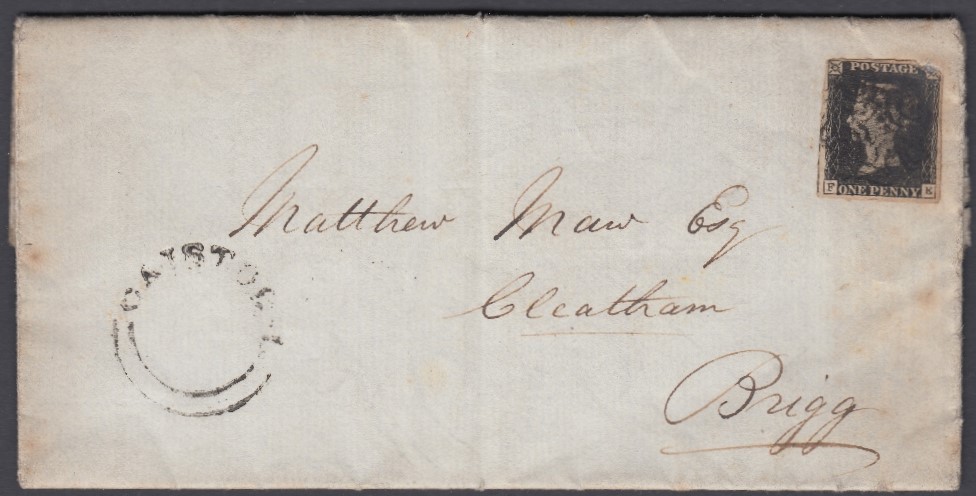 POSTAGE
F ONE PENNY K
Matthew Maw Esq
Cleatham
Brigg
CAISTOR